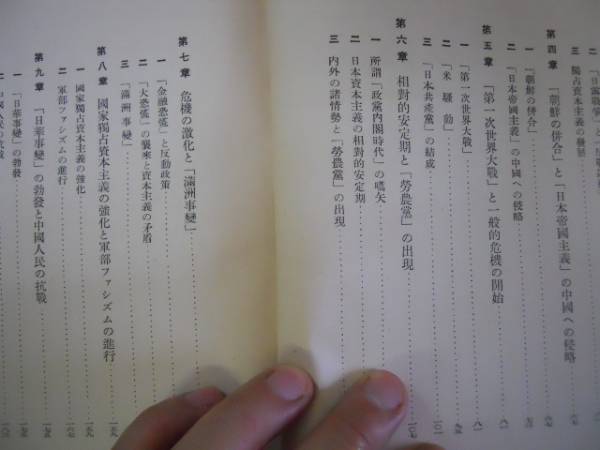 二 「日露戰爭」
三 獨占資本主義の發展
第四章 「朝鮮の併合」と「日本帝國主義」の中國への侵略
一 「朝鮮の併合」
二 「日本帝國主義」の中國への侵略
第五章 「第一次世界大戰」と一般的危機の開始
一 「第一次世界大戰」
二 「米騷動」
三 「日本共產黨」の結成
第六章 相對的安定期と「勞農黨」の出現
一 所謂「政黨內閣時代」の嚆矢
二 日本資本主義の相對的安定期
三 內外の諸情勢と「勞農黨」の出現
第七章 危機の激化と「滿洲事變」
一 「金融恐慌」と反動政策
二 「大恐慌」の襲來と資本主義の矛盾
三 「滿洲事變」
第八章 國家獨占資本主義の強化と軍部ファシズムの進行
一 國家獨占資本主義の強化
二 軍部ファシズムの進行
第九章 「日華事變」の勃發と中國人民の抗戰
一 「日華事變」の勃發
二 中國人民の抗戰